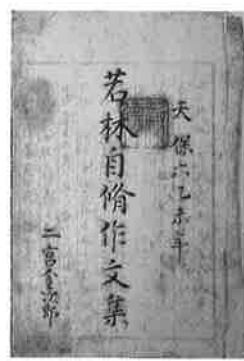 天保六乙未年
若林自脩作文集
二宮金次郎